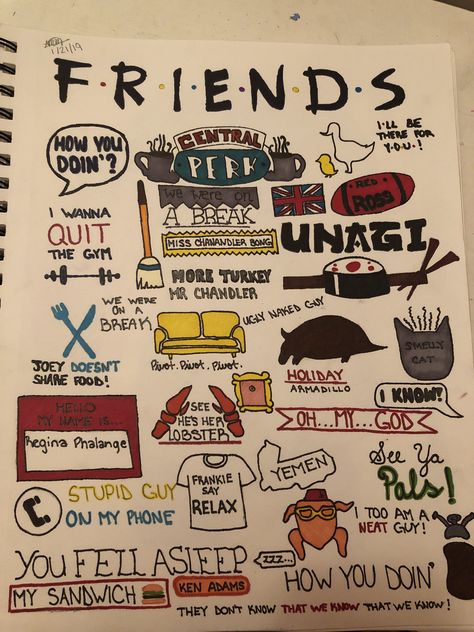 1/21/19
F.R.I.E.N.D.S
HOW YOU
DOIN'?
CENTRAL
PERK
I'LL BE
THERE FOR
Y.O.U.!
WE WERE ON
A BREAK
RED
ROSS
I WANNA
QUIT
THE GYM
MISS CHANANDLER BONG
UNAGI
MORE TURKEY
MR CHANDLER
WE WERE
ON A
BREAK
UGLY NAKED GUY
SMELLY
CAT
Pivot. Pivot. Pivot.
JOEY DOESN'T
SHARE FOOD!
HOLIDAY
ARMADILLO
I KNOW!
HELLO
MY NAME IS...
Regina Phalange
SEE
HE'S HER
LOBSTER
OH...MY...GOD
STUPID GUY
ON MY PHONE
FRANKIE
SAY
RELAX
YEMEN
See Ya
Pals!
I TOO AM A
NEAT GUY!
YOU FELL ASLEEP
ZZZ...
MY SANDWICH
KEN ADAMS
HOW YOU DOIN'
THEY DON'T KNOW THAT WE KNOW THAT WE KNOW!